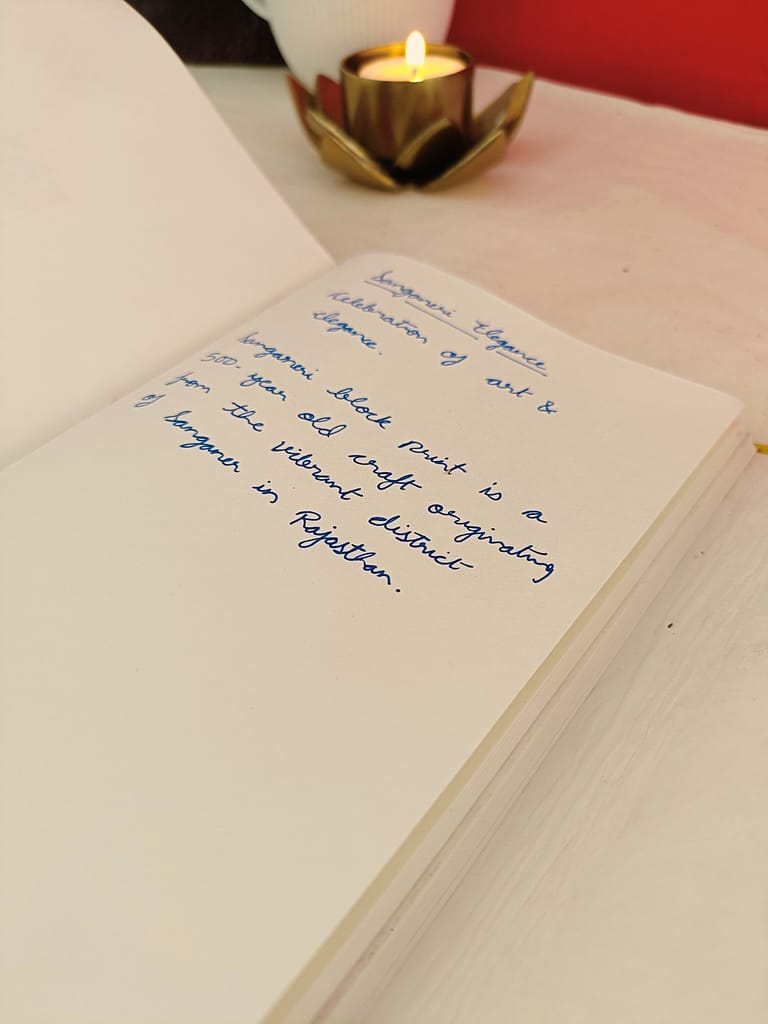 Sanganeri Elegance
Celebration of art &
elegance.
Sanganeri block print is a
500-year old craft originating
from the vibrant district
of Sanganer in Rajasthan.